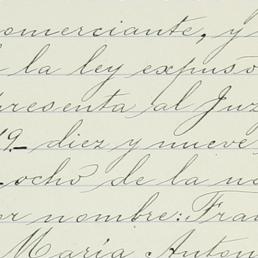 comerciante, y
la ley expuso
presenta al Juz
19_ diez y nueve
ocho de la no
or nombre: Fran
María Anton